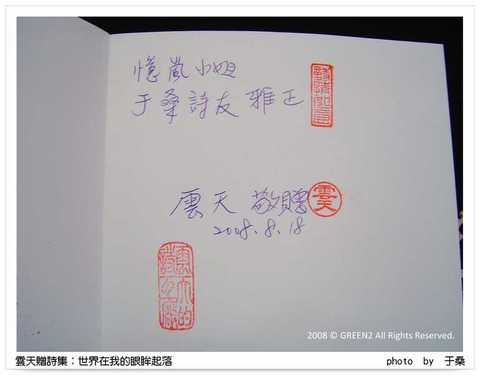 憶嵐小姐
于桑詩友 雅正
雲天 敬贈
雲天
2008.8.18
2008 © GREEN2 All Rights Reserved.
雲天贈詩集：世界在我的眼眸起落
photo by 于桑